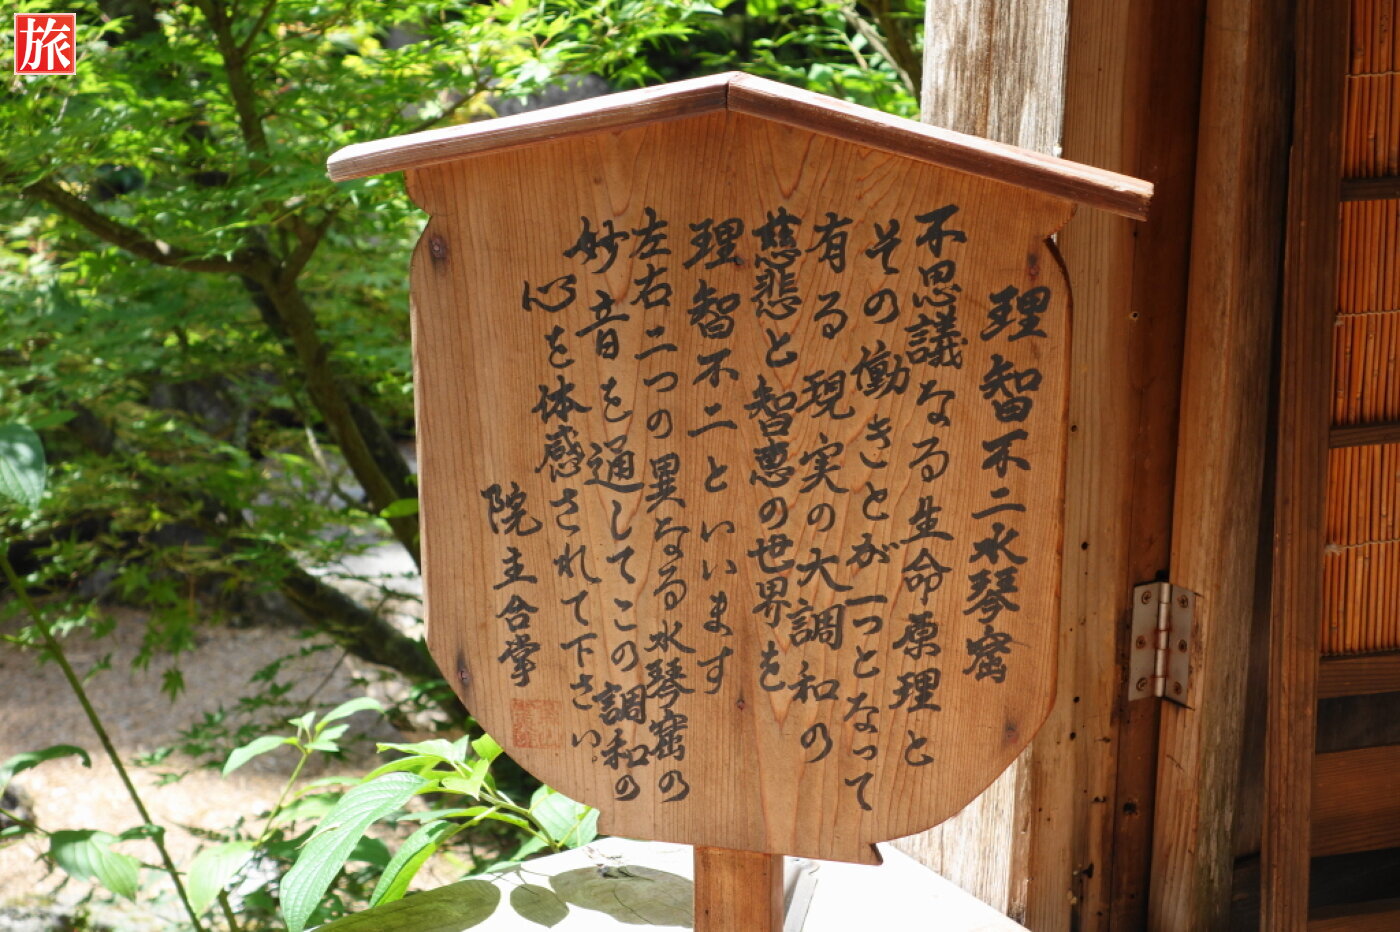 旅
理智不二水琴窟
不思議なる生命原理と
その働きとが一つとなって
有る現実の大調和の
慈悲と智恵の世界を
理智不二といいます
左右二つの異なる水琴窟の
妙音を通してこの調和の
心を体感されて下さい。
院主合掌